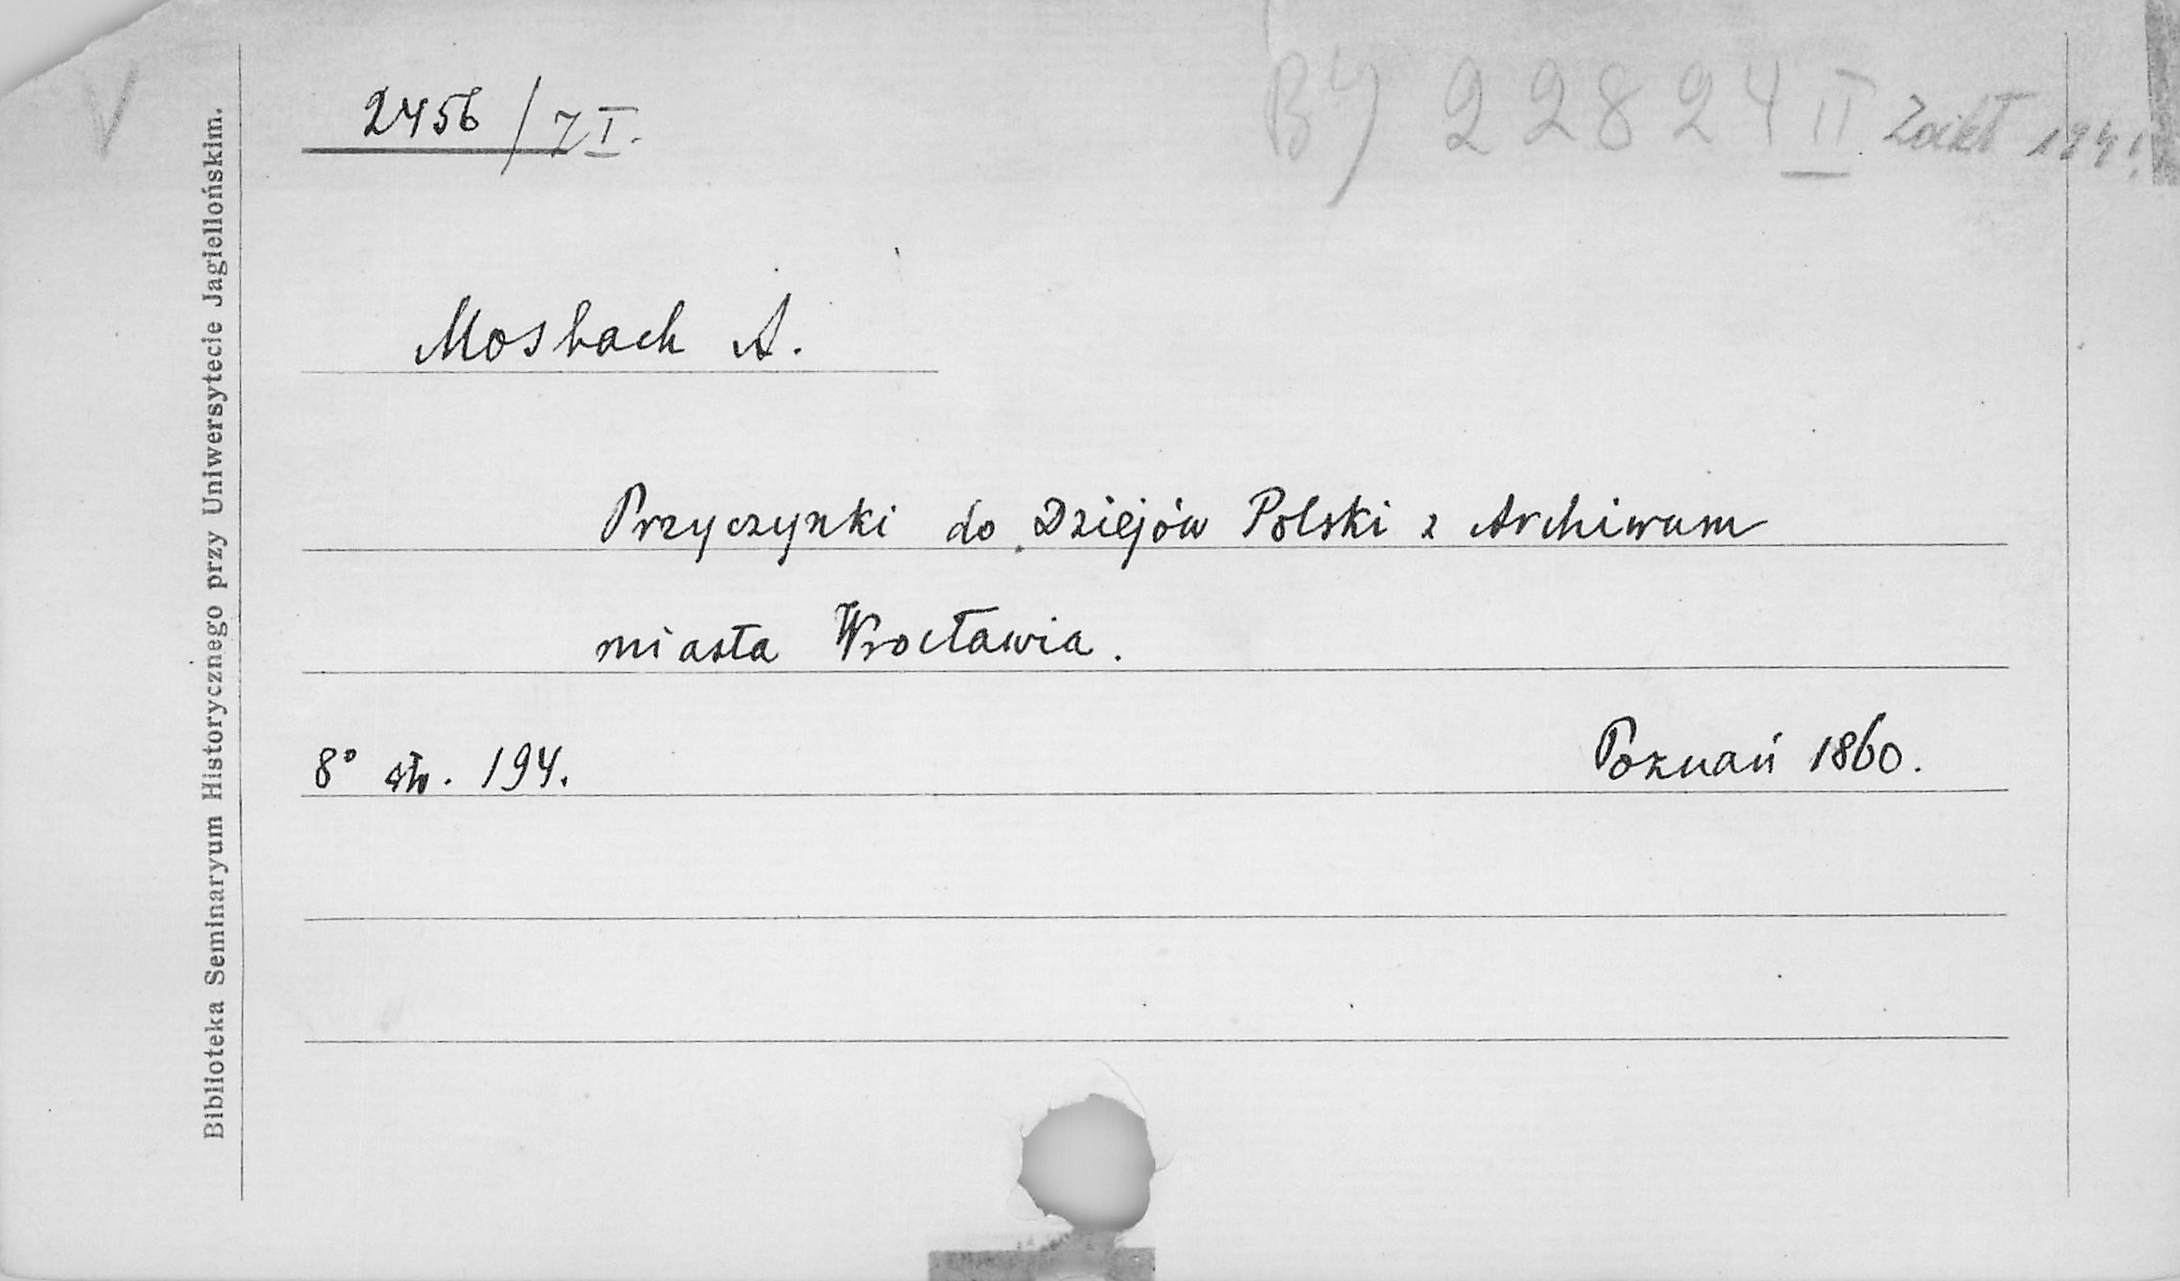 2456/7 I.
BJ 22824 II
Mosbach A.
Przyczynki do Dziejów Polski z Archiwum
miasta Wrocławia.
8° str. 194.
Poznań 1860.
Biblioteka Seminaryum Historycznego przy Uniwersytecie Jagiellońskim.